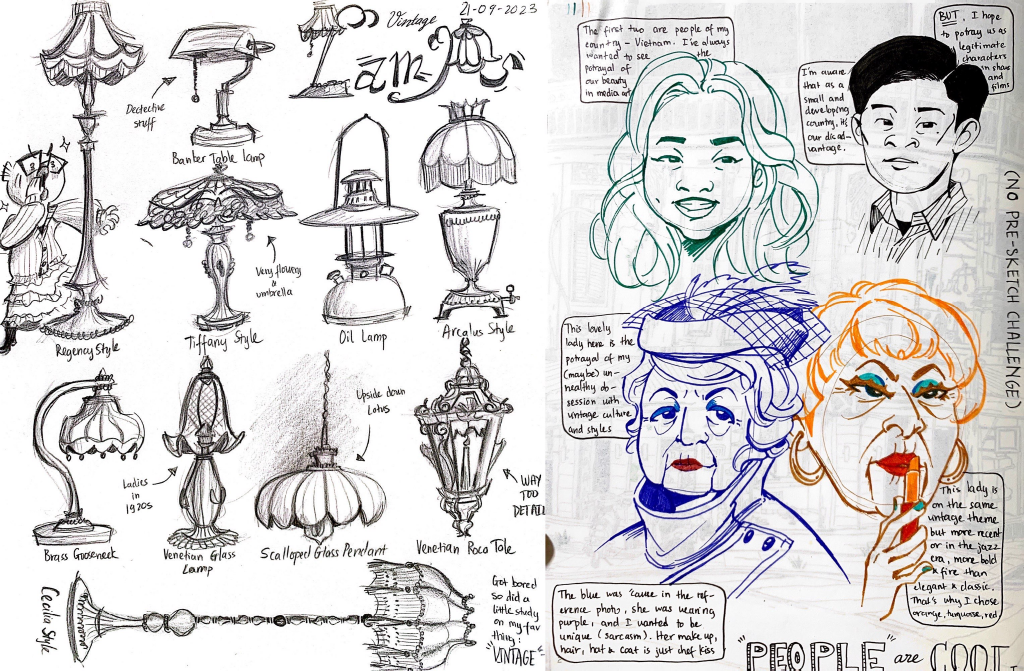 Vintage
21-09-2023
LAMP
Dectective
stuff
Banker Table lamp
Very flowery
umbrella
Regency Style
Tiffany Style
Oil Lamp
Arcalus Style
Upside down
Lotus
Ladies
in
1920s
WAY
TOO
DETAIL
Brass Gooseneck
Venetian Glass
Lamp
Scalloped Glass Pendant
Venetian Roca Tole
Cecilia Style
Got bored
so did a
little study
on my fav
thing:
"VINTAGE"
The first two are people of my
country - Vietnam. I've always
wanted to see the
potrayal of
our beauty
in media art
BUT, I hope
to potray us as
legitimate
characters
in shows
and
films
I'm aware
that as a
small and
developing
country, it's
our disad-
vantage.
(NO PRE-SKETCH CHALLENGE)
This lovely
lady here is the
potrayal of my
(maybe) un-
healthy ob-
session with
vintage culture
and styles
This lady is
on the same
vintage theme
but more recent
or in the jazz
era, more bold
& fire than
elegant & classic.
That's why I chose
orange, turquoise, red
The blue was 'cause in the ref-
erence photo, she was wearing
purple, and I wanted to be
unique (sarcasm). Her make up,
hair, hat & coat is just chef kiss
"PEOPLE" are COOL